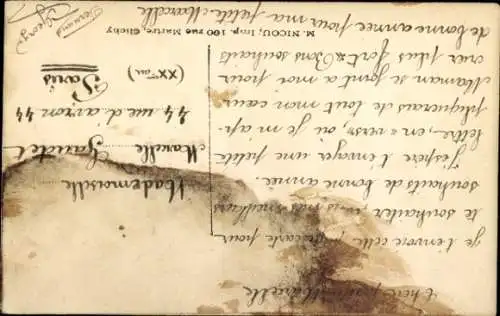 Chere petite Marcelle
je t'envoie cette carte pour
te souhaiter mes meilleurs
souhaits de bonne année.
J'espère t'envoyer une petite
lettre, en "vers", où je m'ap-
pliquerais de tout mon cœur
Maman se joint a moi pour
crier plus fort: Bons souhaits
de bonne année pour ma petite Marcelle
M. NICOU, Imp. 100 rue Martre, Clichy
Mademoiselle
Marcelle
44 rue d'avron 44
Paris
(XXme arr)
Georges